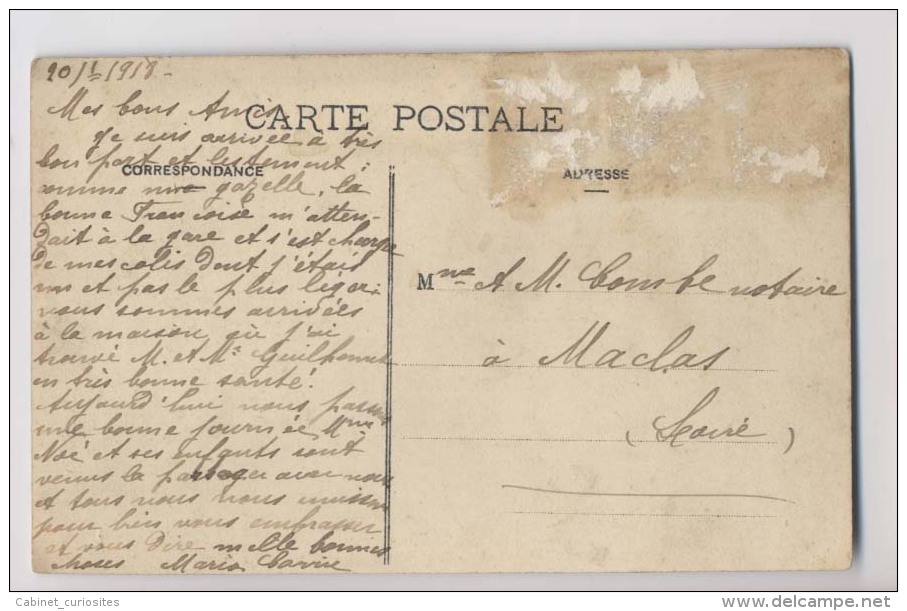 20/1/1918-
Mes bons Amis
CARTE POSTALE
Je suis arrivée à très
bon port et lestement:
CORRESPONDANCE
comme une gazelle, la
bonne Francoise m'atten-
dait à la gare et s'est chargé
de mes colis dont j'étais
et pas le plus leger:
nous sommes arrivées
à la maison où j'ai
trouvé M. et Me
en très bonne santé.
Aujourd'hui nous passons
une bonne journée Mme
Noé et ses enfants sont
venus la partager avec nous
et tous nous nous unissons
pour bien vous embrasser
et vous dire mille bonnes
choses Maria
ADRESSE
Mme et M. Combe notaire
à Maclas
(Loire)
Cabinet_curiosites
delcampe.net